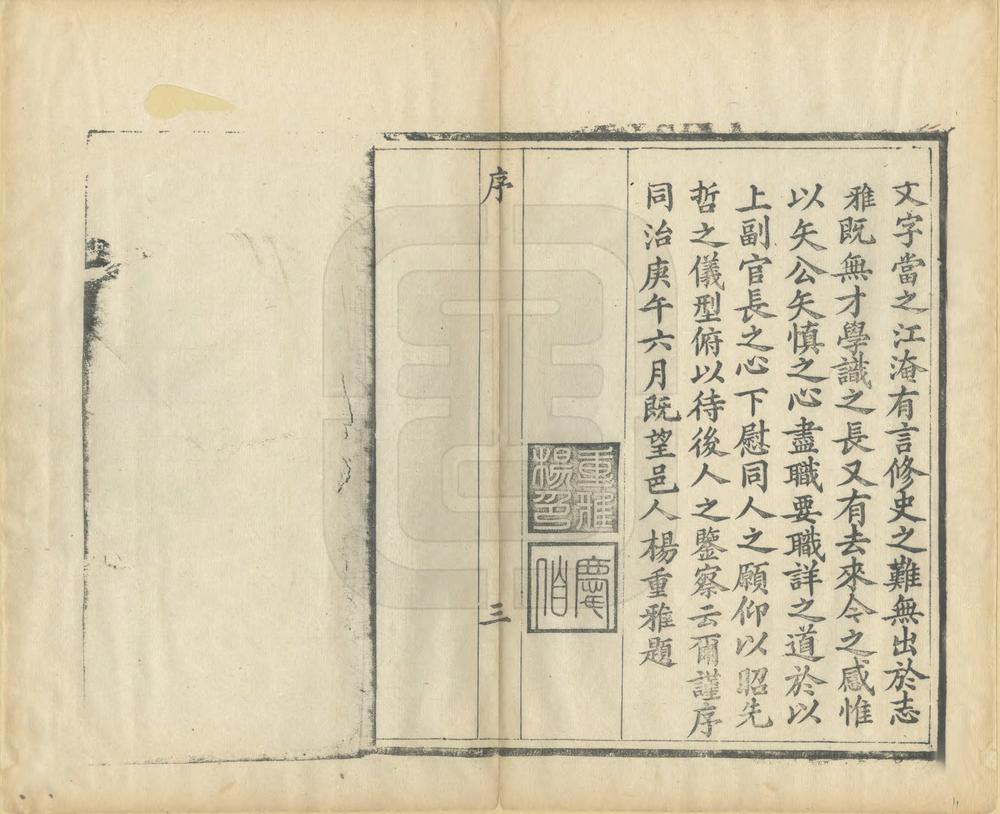 文字當之江淹有言修史之難無出於志
雅既無才學識之長又有去來今之感惟
以矢公矢慎之心盡職要職詳之道於以
上副官長之心下慰同人之願仰以昭先
哲之儀型俯以待後人之鑒察云爾謹序
同治庚午六月既望邑人楊重雅題
重雅楊印
慶伯
序
三